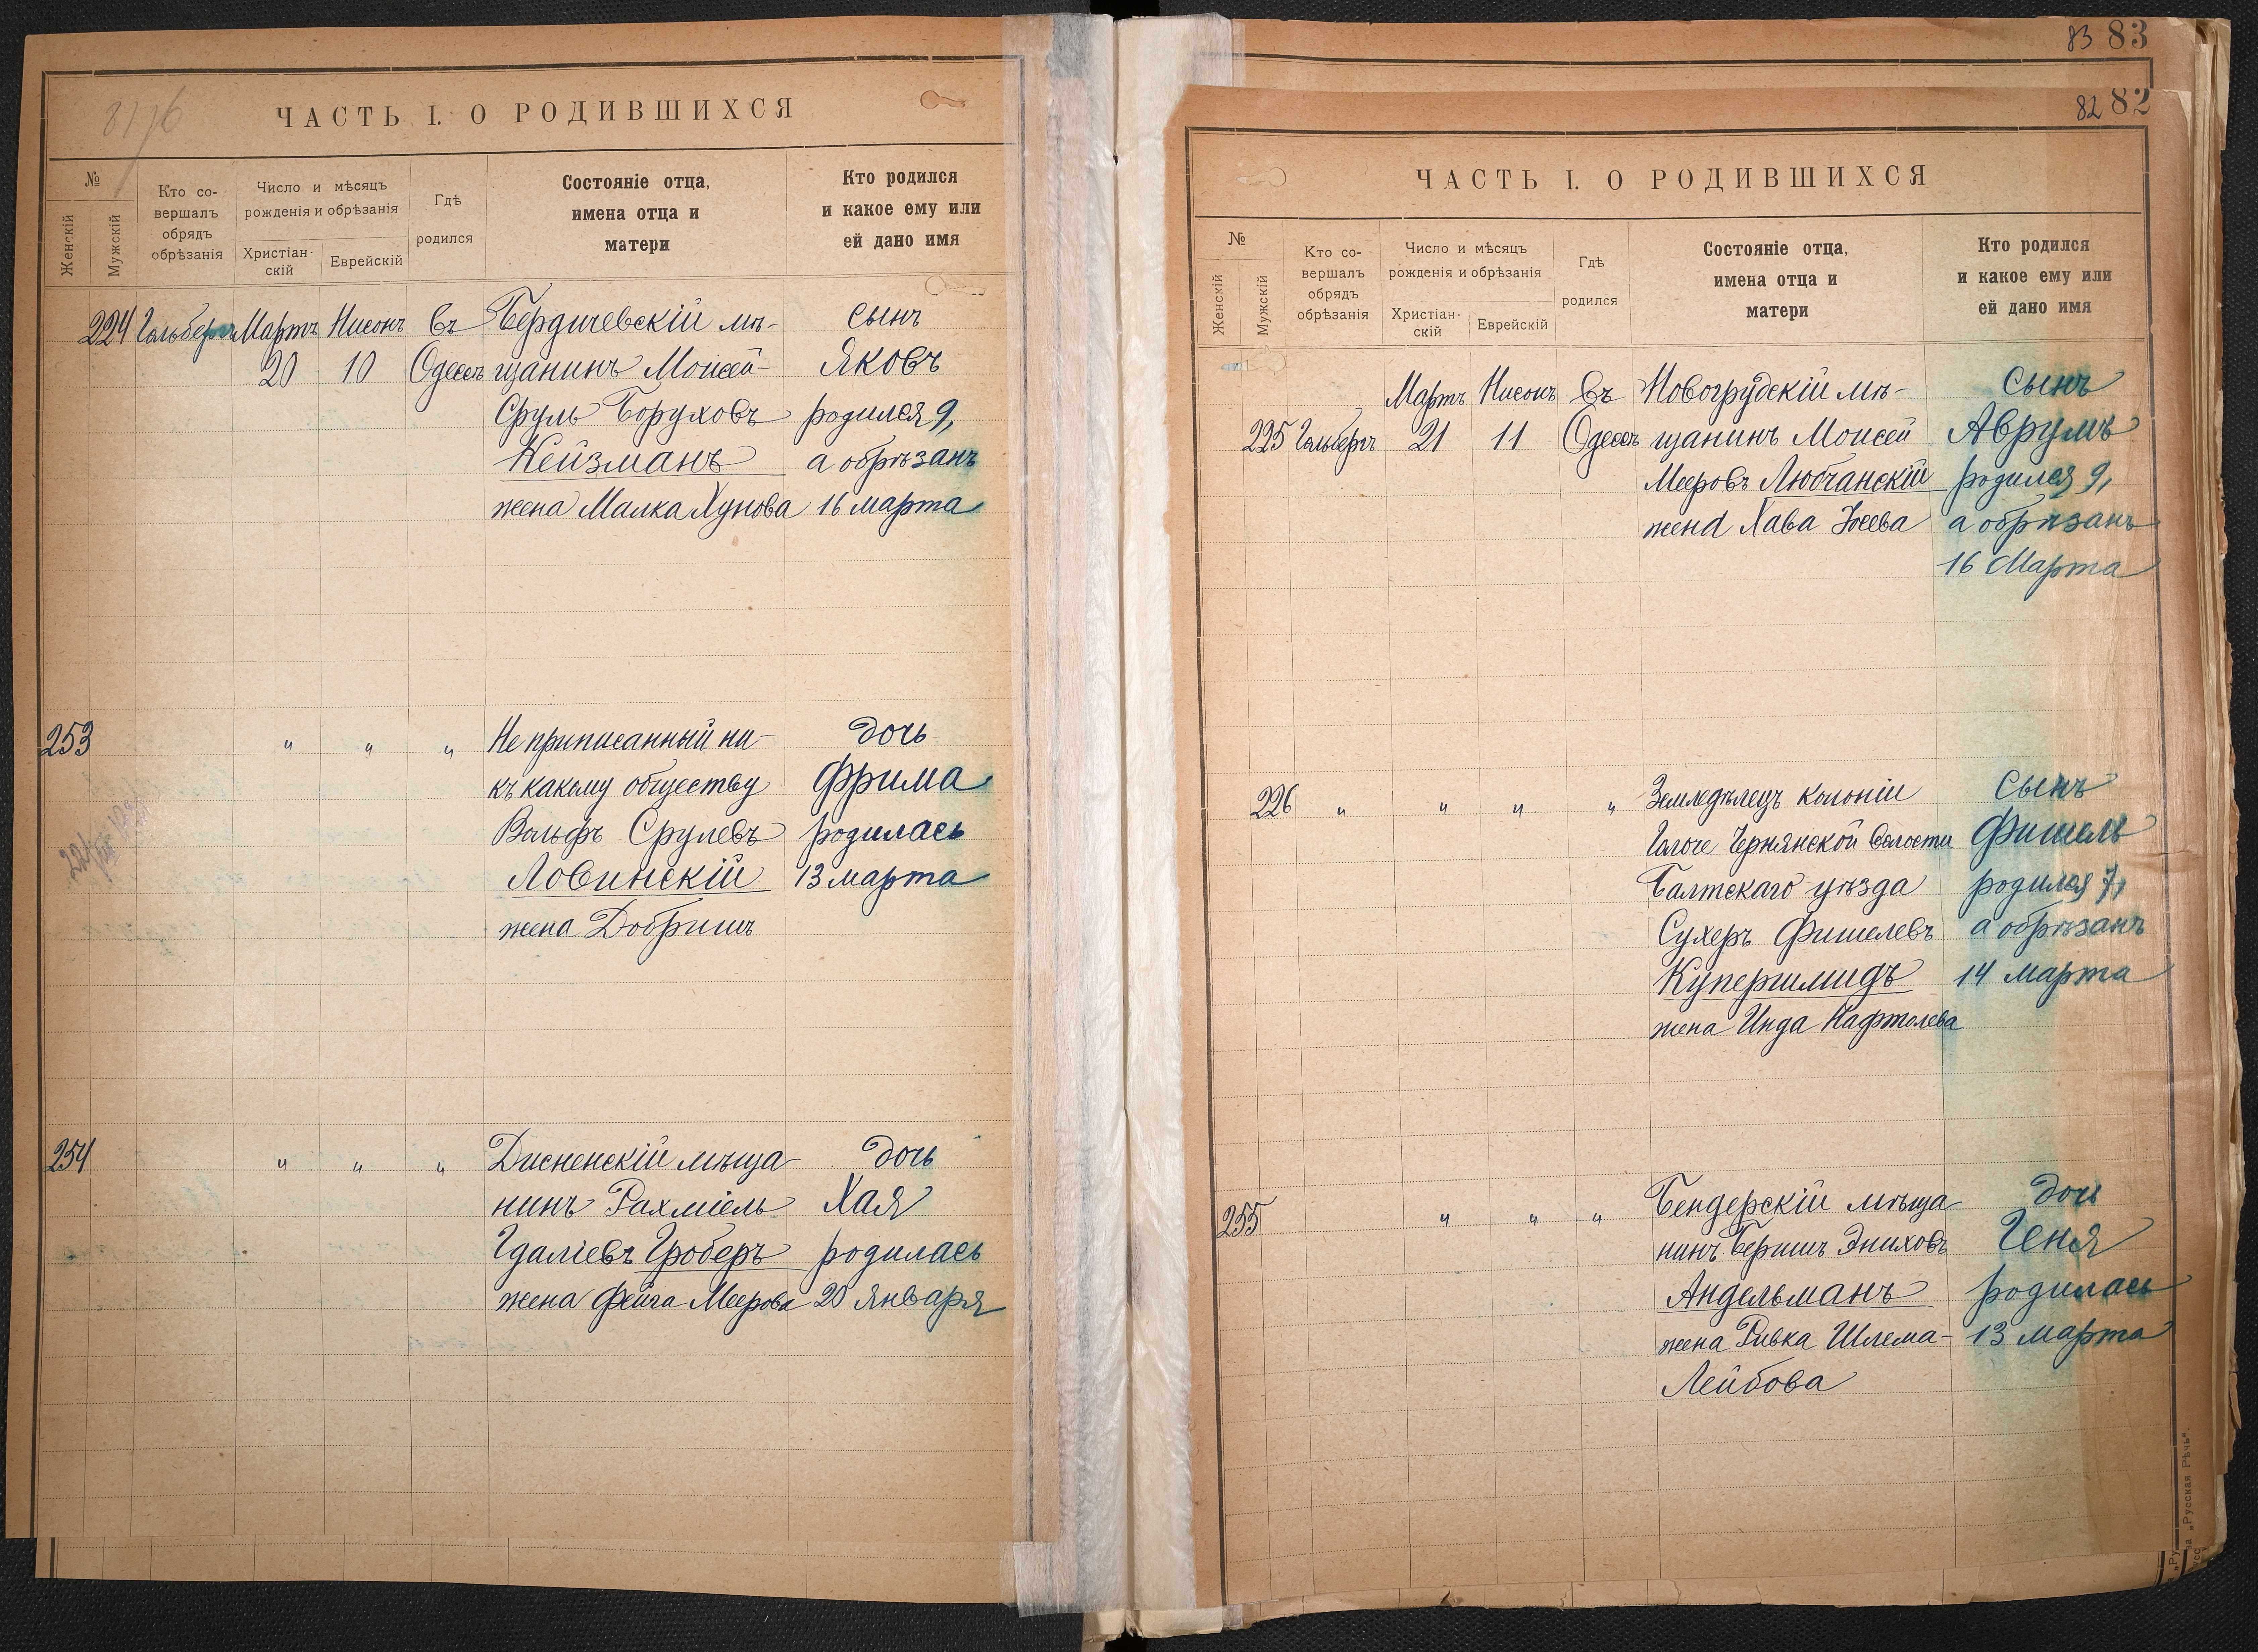 ЧАСТЬ I. О РОДИВШИХСЯ
№
Женскій
Мужскій
Кто со-
вершалъ
обрядъ
обрѣзанія
Число и мѣсяцъ
рожденія и обрѣзанія
Христіан-
скій
Еврейскій
Гдѣ
родился
Состояніе отца,
имена отца и
матери
Кто родился
и какое ему или
ей дано имя
224 Гольбергъ Мартъ Нисонъ въ Бердичевскій мѣ- сынъ
20 10 Одессѣ щанинъ Моисей- Яковъ
Сруль Боруховъ родился 9,
Кейзманъ а обрѣзанъ
жена Малка Хунова 16 марта
253 " " " Не приписанный ни- дочь
къ какому обществу Фрима
Вольфъ Срулевъ родилась
Ловинскій 13 марта
жена Добришъ
254 " " " Дисненскій мѣща- дочь
нинъ Рахміель Хая
Гдаліевъ Гроберъ родилась
жена Фейга Меерова 20 января
83 83
82 82
ЧАСТЬ I. О РОДИВШИХСЯ
№
Женскій
Мужскій
Кто со-
вершалъ
обрядъ
обрѣзанія
Число и мѣсяцъ
рожденія и обрѣзанія
Христіан-
скій
Еврейскій
Гдѣ
родился
Состояніе отца,
имена отца и
матери
Кто родился
и какое ему или
ей дано имя
Мартъ Нисонъ въ Новогрудскій мѣ- сынъ
225 Гольбергъ 21 11 Одессѣ щанинъ Моисей Аврумъ
Мееровъ Любчанскій родился 9,
жена Хава Іосева а обрѣзанъ
16 Марта
226 " " " " Земледѣлецъ колоніи сынъ
Гелоче Чернянской волости Фишель
Балтскаго уѣзда родился 7,
Сухеръ Фишелевъ а обрѣзанъ
Купершмидъ 14 марта
жена Инда Нафтолева
255 " " " Бендерскій мѣща- дочь
нинъ Беришъ Эниховъ Геня
Андельманъ родилась
жена Ривка Шлема- 13 марта
Лейбова
„Русская Рѣчь“.